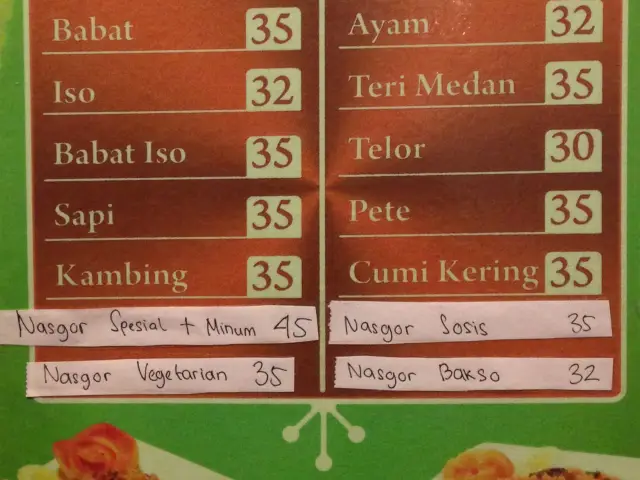 Babat 35
Iso 32
Babat Iso 35
Sapi 35
Kambing 35
Nasgor Spesial + Minum 45
Nasgor Vegetarian 35
Ayam 32
Teri Medan 35
Telor 30
Pete 35
Cumi Kering 35
Nasgor Sosis 35
Nasgor Bakso 32